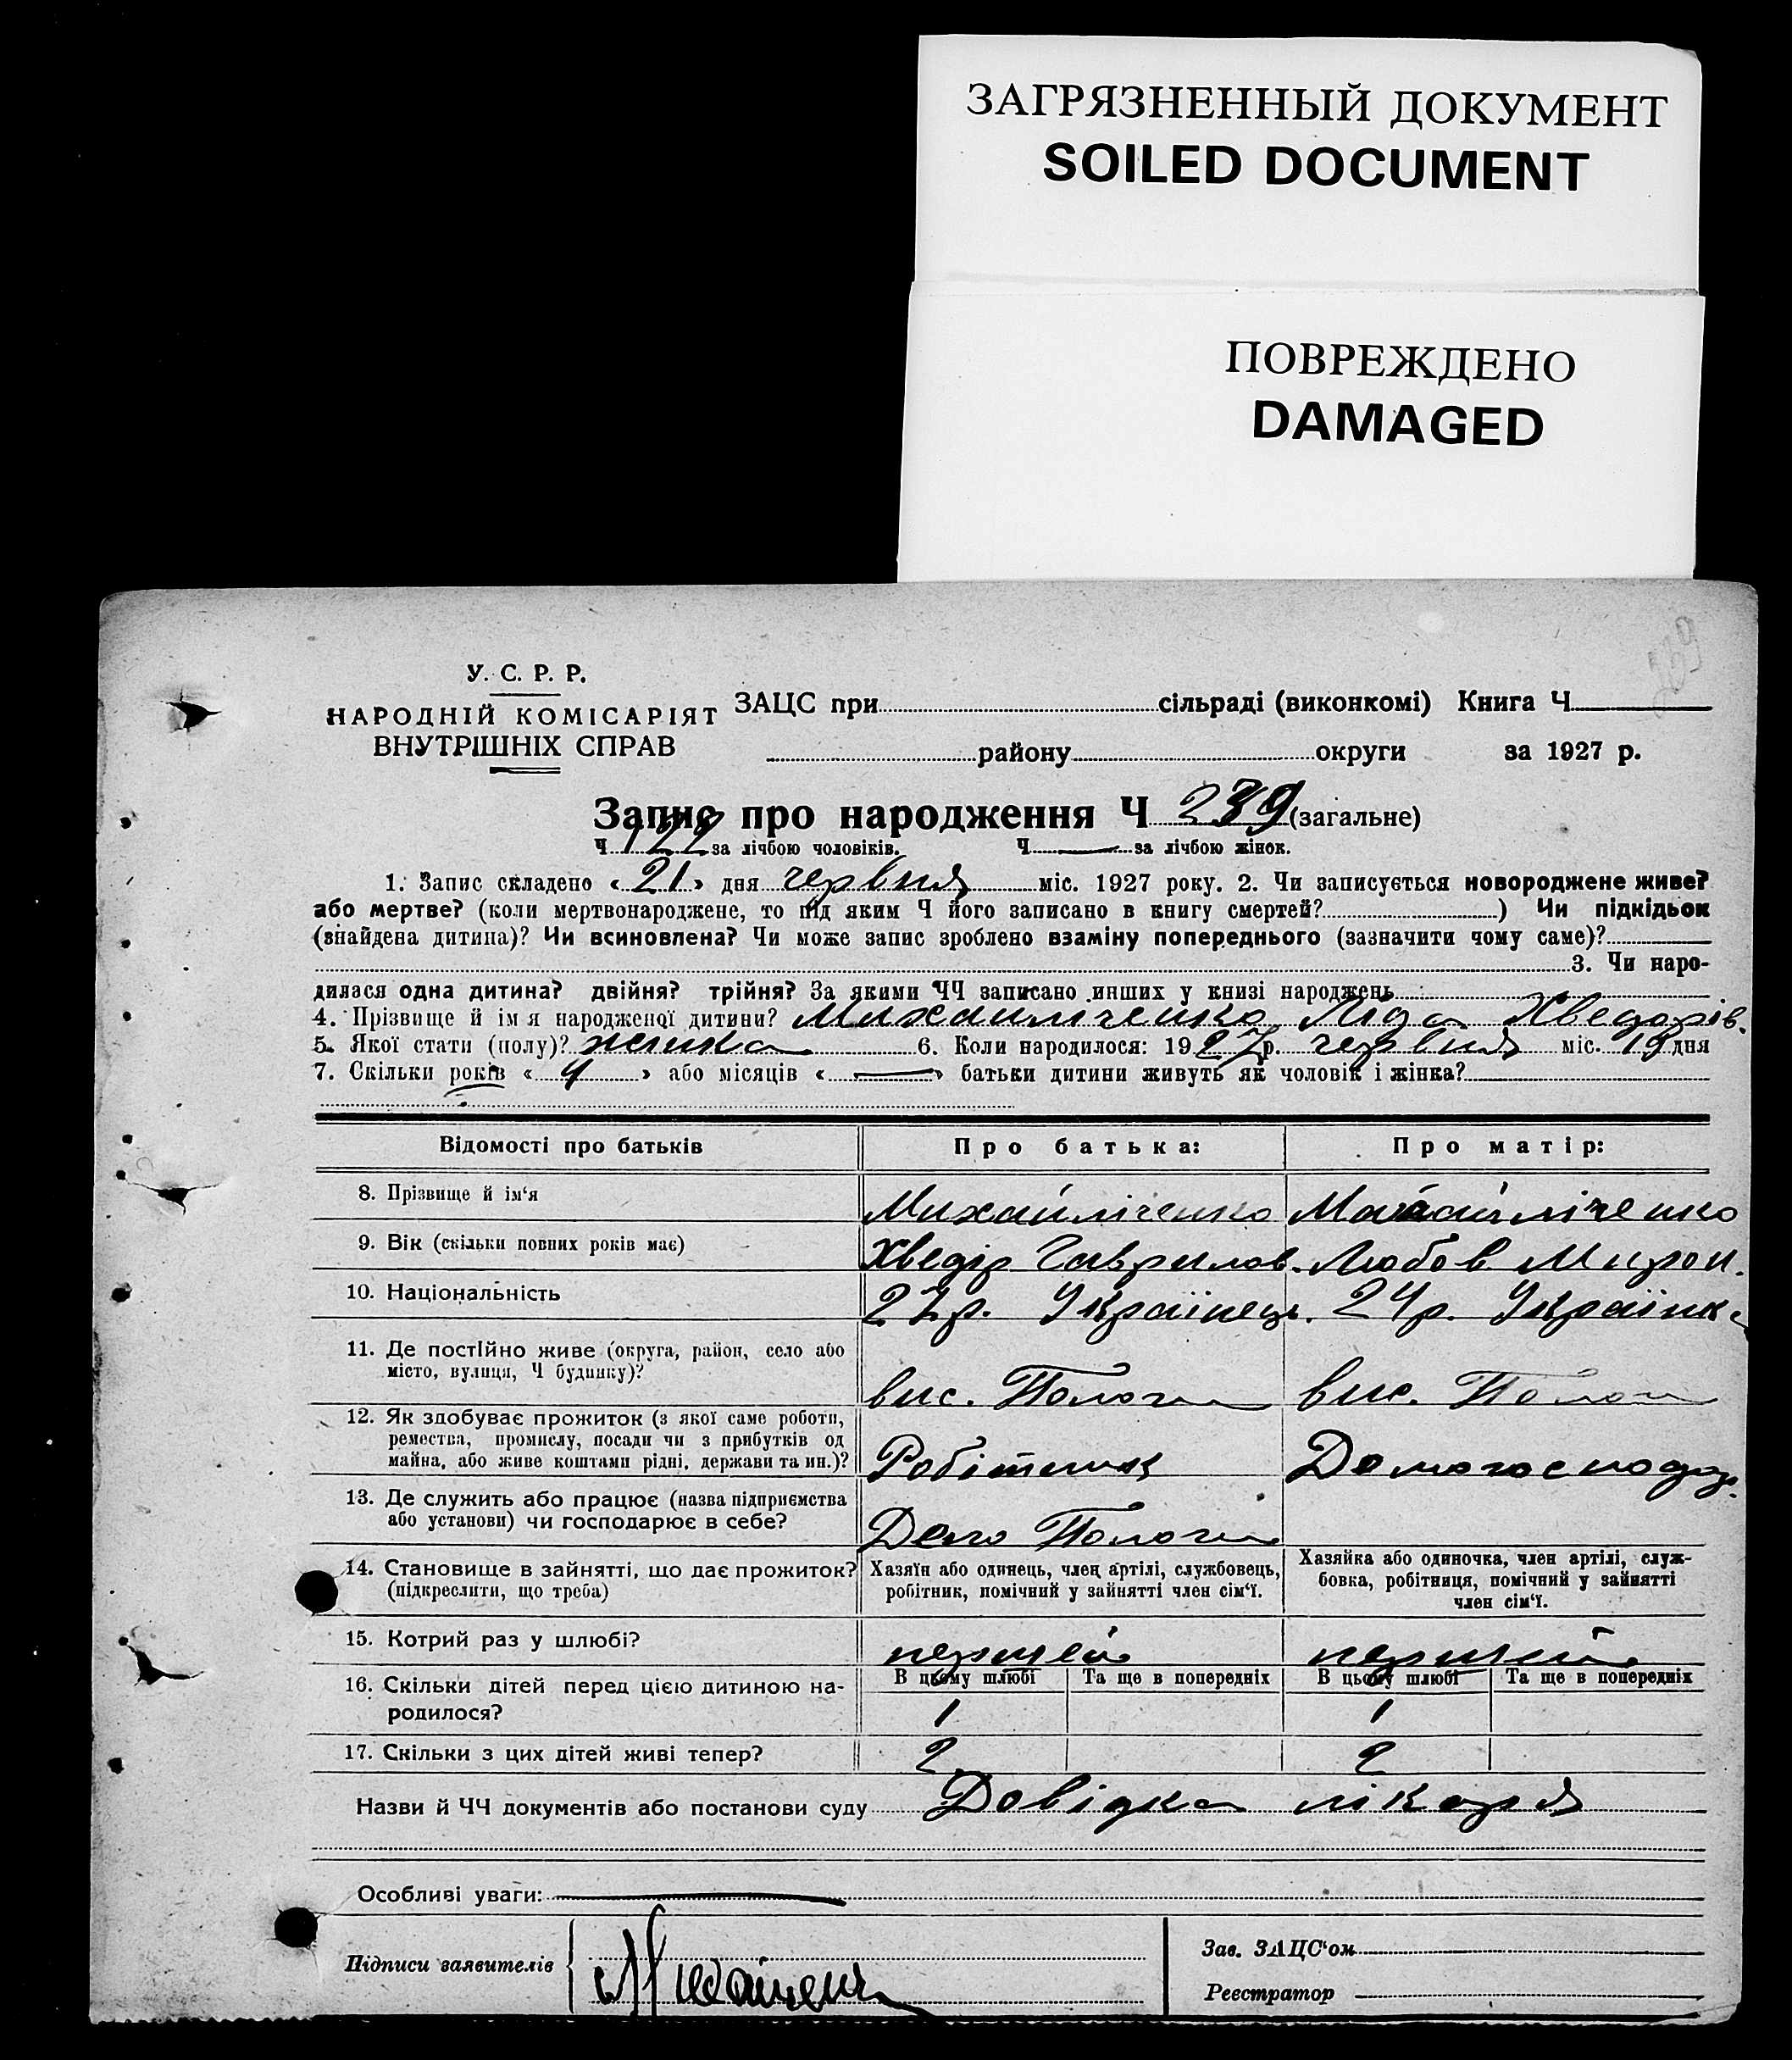 ЗАГРЯЗНЕННЫЙ ДОКУМЕНТ
SOILED DOCUMENT
ПОВРЕЖДЕНО
DAMAGED
У. С. Р. Р.
НАРОДНІЙ КОМІСАРІЯТ
ВНУТРІШНІХ СПРАВ
ЗАЦС при сільраді (виконкомі) Книга Ч
району округи за 1927 р.
Запис про народження Ч 239 (загальне)
Ч 122 за лічбою чоловіків. Ч — за лічбою жінок.
1. Запис складено «21» дня червня міс. 1927 року. 2. Чи записується новороджене живе?
або мертве? (коли мертвонароджене, то під яким Ч його записано в книгу смертей? ) Чи підкідьок
(знайдена дитина)? Чи всиновлена? Чи може запис зроблено взаміну попереднього (зазначити чому саме)?
3. Чи наро-
дилася одна дитина? двійня? трійня? За якими ЧЧ записано инших у книзі народжень
4. Прізвище й імя народженої дитини? Михайліченко Ліда Хведорів.
5. Якої стати (полу)? жінка 6. Коли народилося: 1927 р. червня міс. 19 дня
7. Скільки років «4» або місяців «—» батьки дитини живуть як чоловік і жінка?
Відомості про батьків Про батька: Про матір:
8. Прізвище й ім‘я Михайліченко Михайліченко
9. Вік (скільки повних років має) Хведір Гаврилов. Любов Мирон.
10. Національність 27р. Українець. 24р. Українка
11. Де постійно живе (округа, район, село або
місто, вулиця, Ч будинку)? вис. Пологи вис. Пологи
12. Як здобуває прожиток (з якої саме роботи,
ремества, промислу, посади чи з прибутків од
майна, або живе коштами рідні, держави та ин.)? Робітник Домогосподар.
13. Де служить або працює (назва підприємства
або установи) чи господарює в себе? Депо Пологи
14. Становище в зайнятті, що дає прожиток?
(підкреслити, що треба)
Хазяїн або одинець, член артілі, службовець,
робітник, помічний у зайнятті член сім‘ї.
Хазяйка або одиночка, член артілі, служ-
бовка, робітниця, помічний у зайнятті
член сім‘ї.
15. Котрий раз у шлюбі? перший перший
16. Скільки дітей перед цією дитиною на-
родилося?
В цьому шлюбі Та ще в попередніх В цьому шлюбі Та ще в попередніх
1 1
17. Скільки з цих дітей живі тепер? 2 2
Назви й ЧЧ документів або постанови суду Довідка лікаря
Особливі уваги: —
Підписи заявителів
Зав. ЗАЦС‘ом
Реєстратор